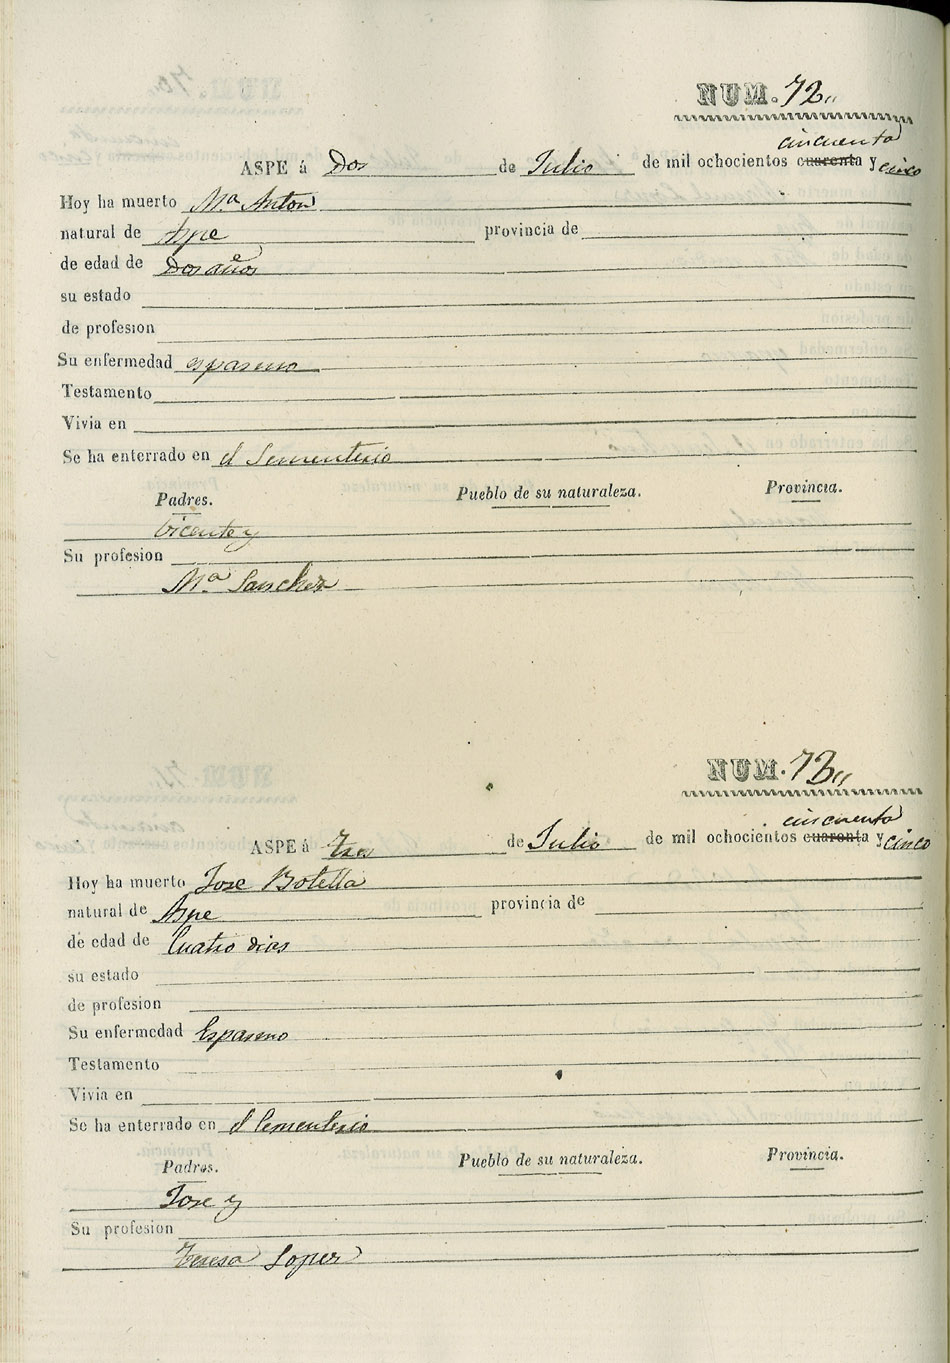 NUM. 72.
cincuenta
ASPE á Dos de Julio de mil ochocientos cuarenta y cinco
Hoy ha muerto Mª Anton
natural de Aspe provincia de
de edad de Dos años
su estado
de profesion
Su enfermedad espasmo
Testamento
Vivia en
Se ha enterrado en el Sementerio
Padres. Pueblo de su naturaleza. Provincia.
Vicente y
Su profesion
Mª Sanchez
NUM. 73
cincuenta
ASPE á Tres de Julio de mil ochocientos cuaronta y cinco
Hoy ha muerto Jose Botella
natural de Aspe provincia de
de edad de Cuatro dias
su estado
de profesion
Su enfermedad Espasmo
Testamento
Vivia en
Se ha enterrado en el Cementerio
Padres. Pueblo de su naturaleza. Provincia.
Jose y
Su profesion
Teresa Lopez